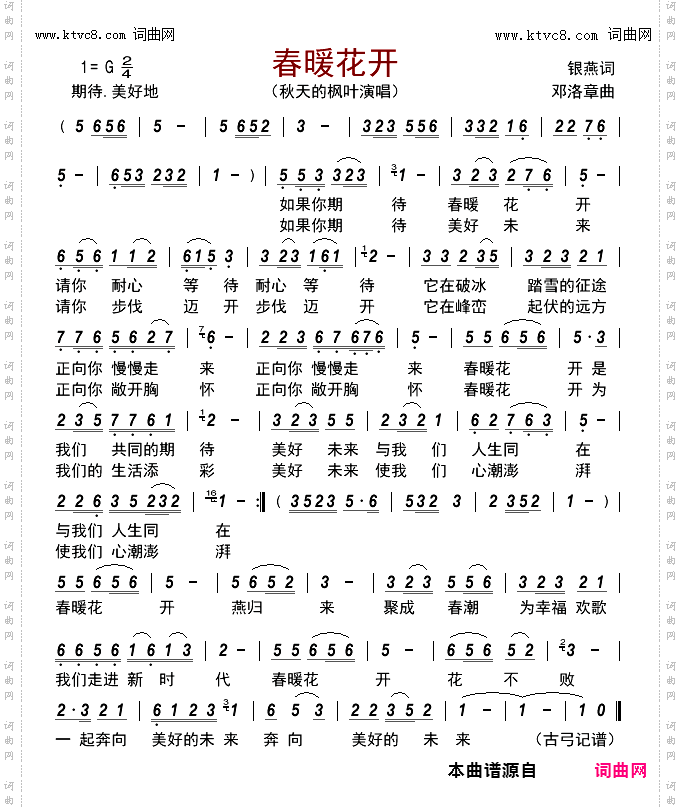 www.ktvc8.com 词曲网 www.ktvc8.com 词曲网
春暖花开
1= G 2/4 银燕词
期待.美好地 （秋天的枫叶演唱） 邓洛章曲
( 5 656 | 5 - | 5 652 | 3 - | 323 556 | 332 16 | 22 76 |
5 - | 653 232 | 1 - ) | 5 5 3 323 | 3 1 - | 3 2 3 2 7 6 | 5 - |
如果你期 待 春暖 花 开
如果你期 待 美好 未 来
6 5 6 1 1 2 | 615 3 323 161 | 1 2 - | 3 3 2 35 | 3 2 3 2 1 |
请你 耐心 等 待 耐心 等 待 它在破冰 踏雪的征途
请你 步伐 迈 开 步伐 迈 开 它在峰峦 起伏的远方
7 7 6 5 6 2 7 | 7 6 - | 2 2 3 6 7 676 | 5 - | 5 5 6 5 6 | 5 · 3 |
正向你 慢慢走 来 正向你 慢慢走 来 春暖花 开 是
正向你 敞开胸 怀 正向你 敞开胸 怀 春暖花 开 为
2 3 5 7 7 6 1 | 1 2 - | 3 2 3 5 5 | 2 3 2 1 | 6 2 7 6 3 | 5 - |
我们 共同的期 待 美好 未来 与我 们 人生同 在
我们的 生活添 彩 美好 未来 使我 们 心潮澎 湃
2 2 6 3 5 232 | 16 1 - :‖ ( 3523 5·6 | 532 3 | 2 352 | 1 - ) |
与我们 人生同 在
使我们 心潮澎 湃
5 5 6 5 6 | 5 - | 5 6 5 2 | 3 - | 3 2 3 5 5 6 | 3 2 3 2 1 |
春暖花 开 燕归 来 聚成 春潮 为幸福 欢歌
6 6 5 6 1 6 1 3 | 2 - | 5 5 6 5 6 | 5 - | 6 5 6 5 2 | 2 3 - |
我们走进 新 时 代 春暖花 开 花 不 败
2 · 3 2 1 | 6 1 2 3 3 1 | 6 5 3 | 2 2 3 5 2 | 1 - | 1 - | 1 0 ‖
一 起奔向 美好的未 来 奔 向 美好的 未 来 （古弓记谱）
本曲谱源自 词曲网